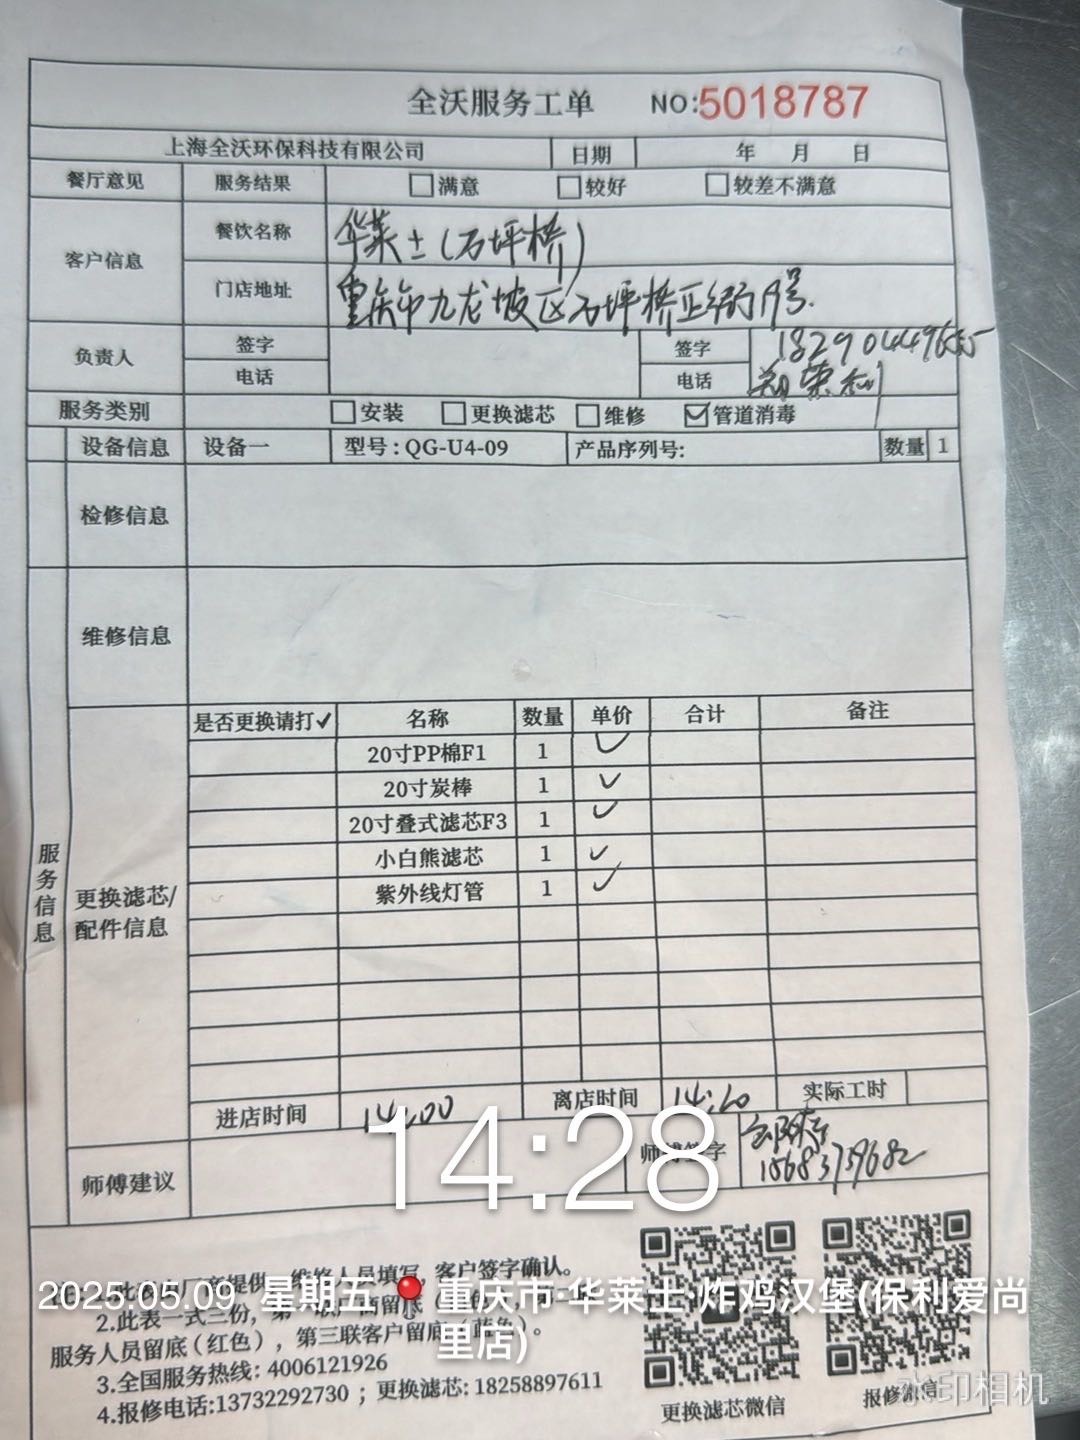 全沃服务工单 NO:5018787
上海全沃环保科技有限公司 日期 年 月 日
餐厅意见 服务结果 □满意 □较好 □较差不满意
客户信息 餐饮名称 华莱士(石坪桥)
门店地址 重庆市九龙坡区石坪桥正街 号.
负责人 签字 签字 18290449655
电话 电话
服务类别 □安装 □更换滤芯 □维修 ☑管道消毒
设备信息 设备一 型号:QG-U4-09 产品序列号: 数量 1
检修信息
维修信息
服务信息
更换滤芯/配件信息
是否更换请打✓ 名称 数量 单价 合计 备注
20寸PP棉F1 1 ✓
20寸炭棒 1 ✓
20寸叠式滤芯F3 1 ✓
小白熊滤芯 1 ✓
紫外线灯管 1 ✓
进店时间 14:00 离店时间 14:20 实际工时
师傅建议 师傅签字
15683759682
14:28
维修人员填写,客户签字确认。
2025.05.09 星期五 重庆市·华莱士·炸鸡汉堡(保利爱尚里店)
2.此表一式三份,第一
服务人员留底(红色),第三联客户留底(蓝色)。
3.全国服务热线: 4006121926
4.报修电话:13732292730 ; 更换滤芯: 18258897611
更换滤芯微信 报修微信
水印相机